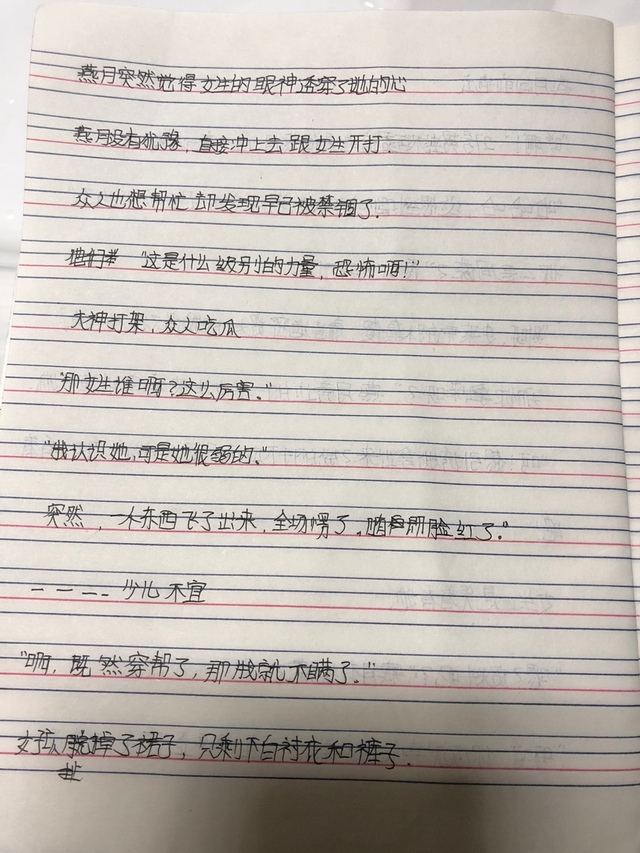 燕月突然觉得女生的眼神透穿了她的心
燕月没有犹豫,直接冲上去跟女生开打.
众人也想帮忙却发现早已被禁锢了.
他们 "这是什么级别的力量,恐怖啊!"
大神打架,众人吃瓜
"那女生谁啊?这么厉害."
"我认识她,可是她很弱的."
突然,一 东西飞了出来,全场愣了, 脸红了."
一一一一少儿不宜
"啊,既然穿帮了,那我就不瞒了."
女孩 脱掉了裙子,只剩下白衬衣和裤子.